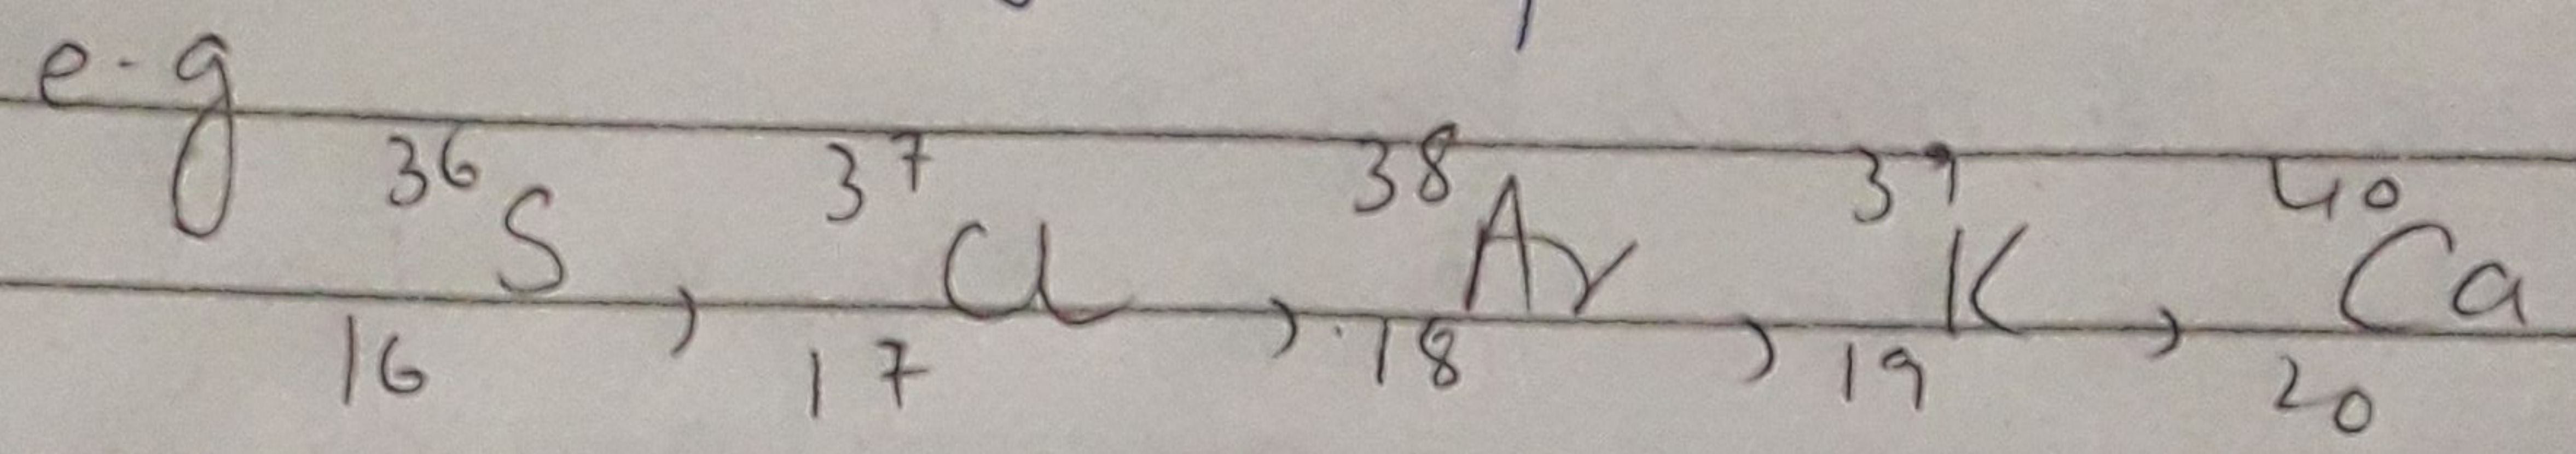 e.g
³⁶₁₆S , ³⁷₁₇Cl , ³⁸₁₈Ar , ³⁹₁₉K , ⁴⁰₂₀Ca